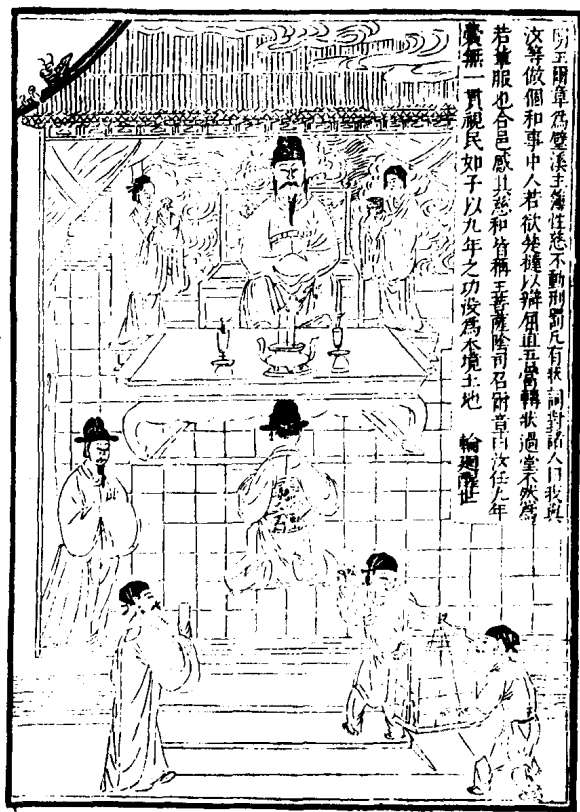 王爾章為璧溪主簿性慈不動刑罰凡有狀詞對諸人曰我與
汝等做個和事中人若欲笞撻以辯屈直五當轉狀過堂不然為
若輩服也合邑感其慈和皆稱王菩薩陰司召爾章曰汝任九年
囊無一貫視民如子以九年之功沒為本境土地 輪廻醒世